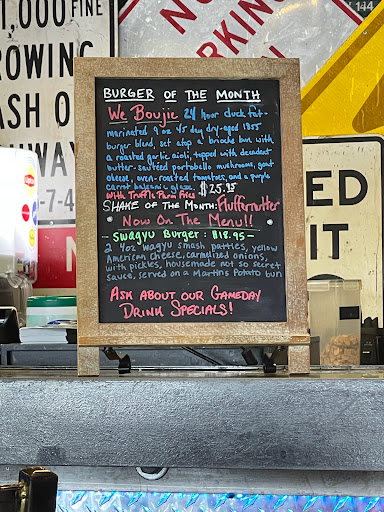 1,000 FINE
ROWING
ASH O
WAY
7-4
NO
PARKING
144
ED
IT
BURGER OF THE MONTH
We Boujie 24 hour duck fat-
marinated 9 oz 45 day dry-aged 1855
burger blend, set atop a brioche bun with
a roasted garlic aioli, topped with decadent
butter-sautéed portobello mushrooms, goat
cheese, oven-roasted tomatoes, and a purple
carrot balsamic glaze. $25.95
With Truffle Parm Fries
SHAKE OF THE MONTH: Fluffernutter
Now On The Menu!!
- Swagyu Burger: $18.95 -
2 4oz wagyu smash patties, yellow
American cheese, caramelized onions,
with pickles, housemade not so secret
sauce, served on a Martins Potato bun
ASK ABOUT OUR GAMEDAY
DRINK SPECIALS!